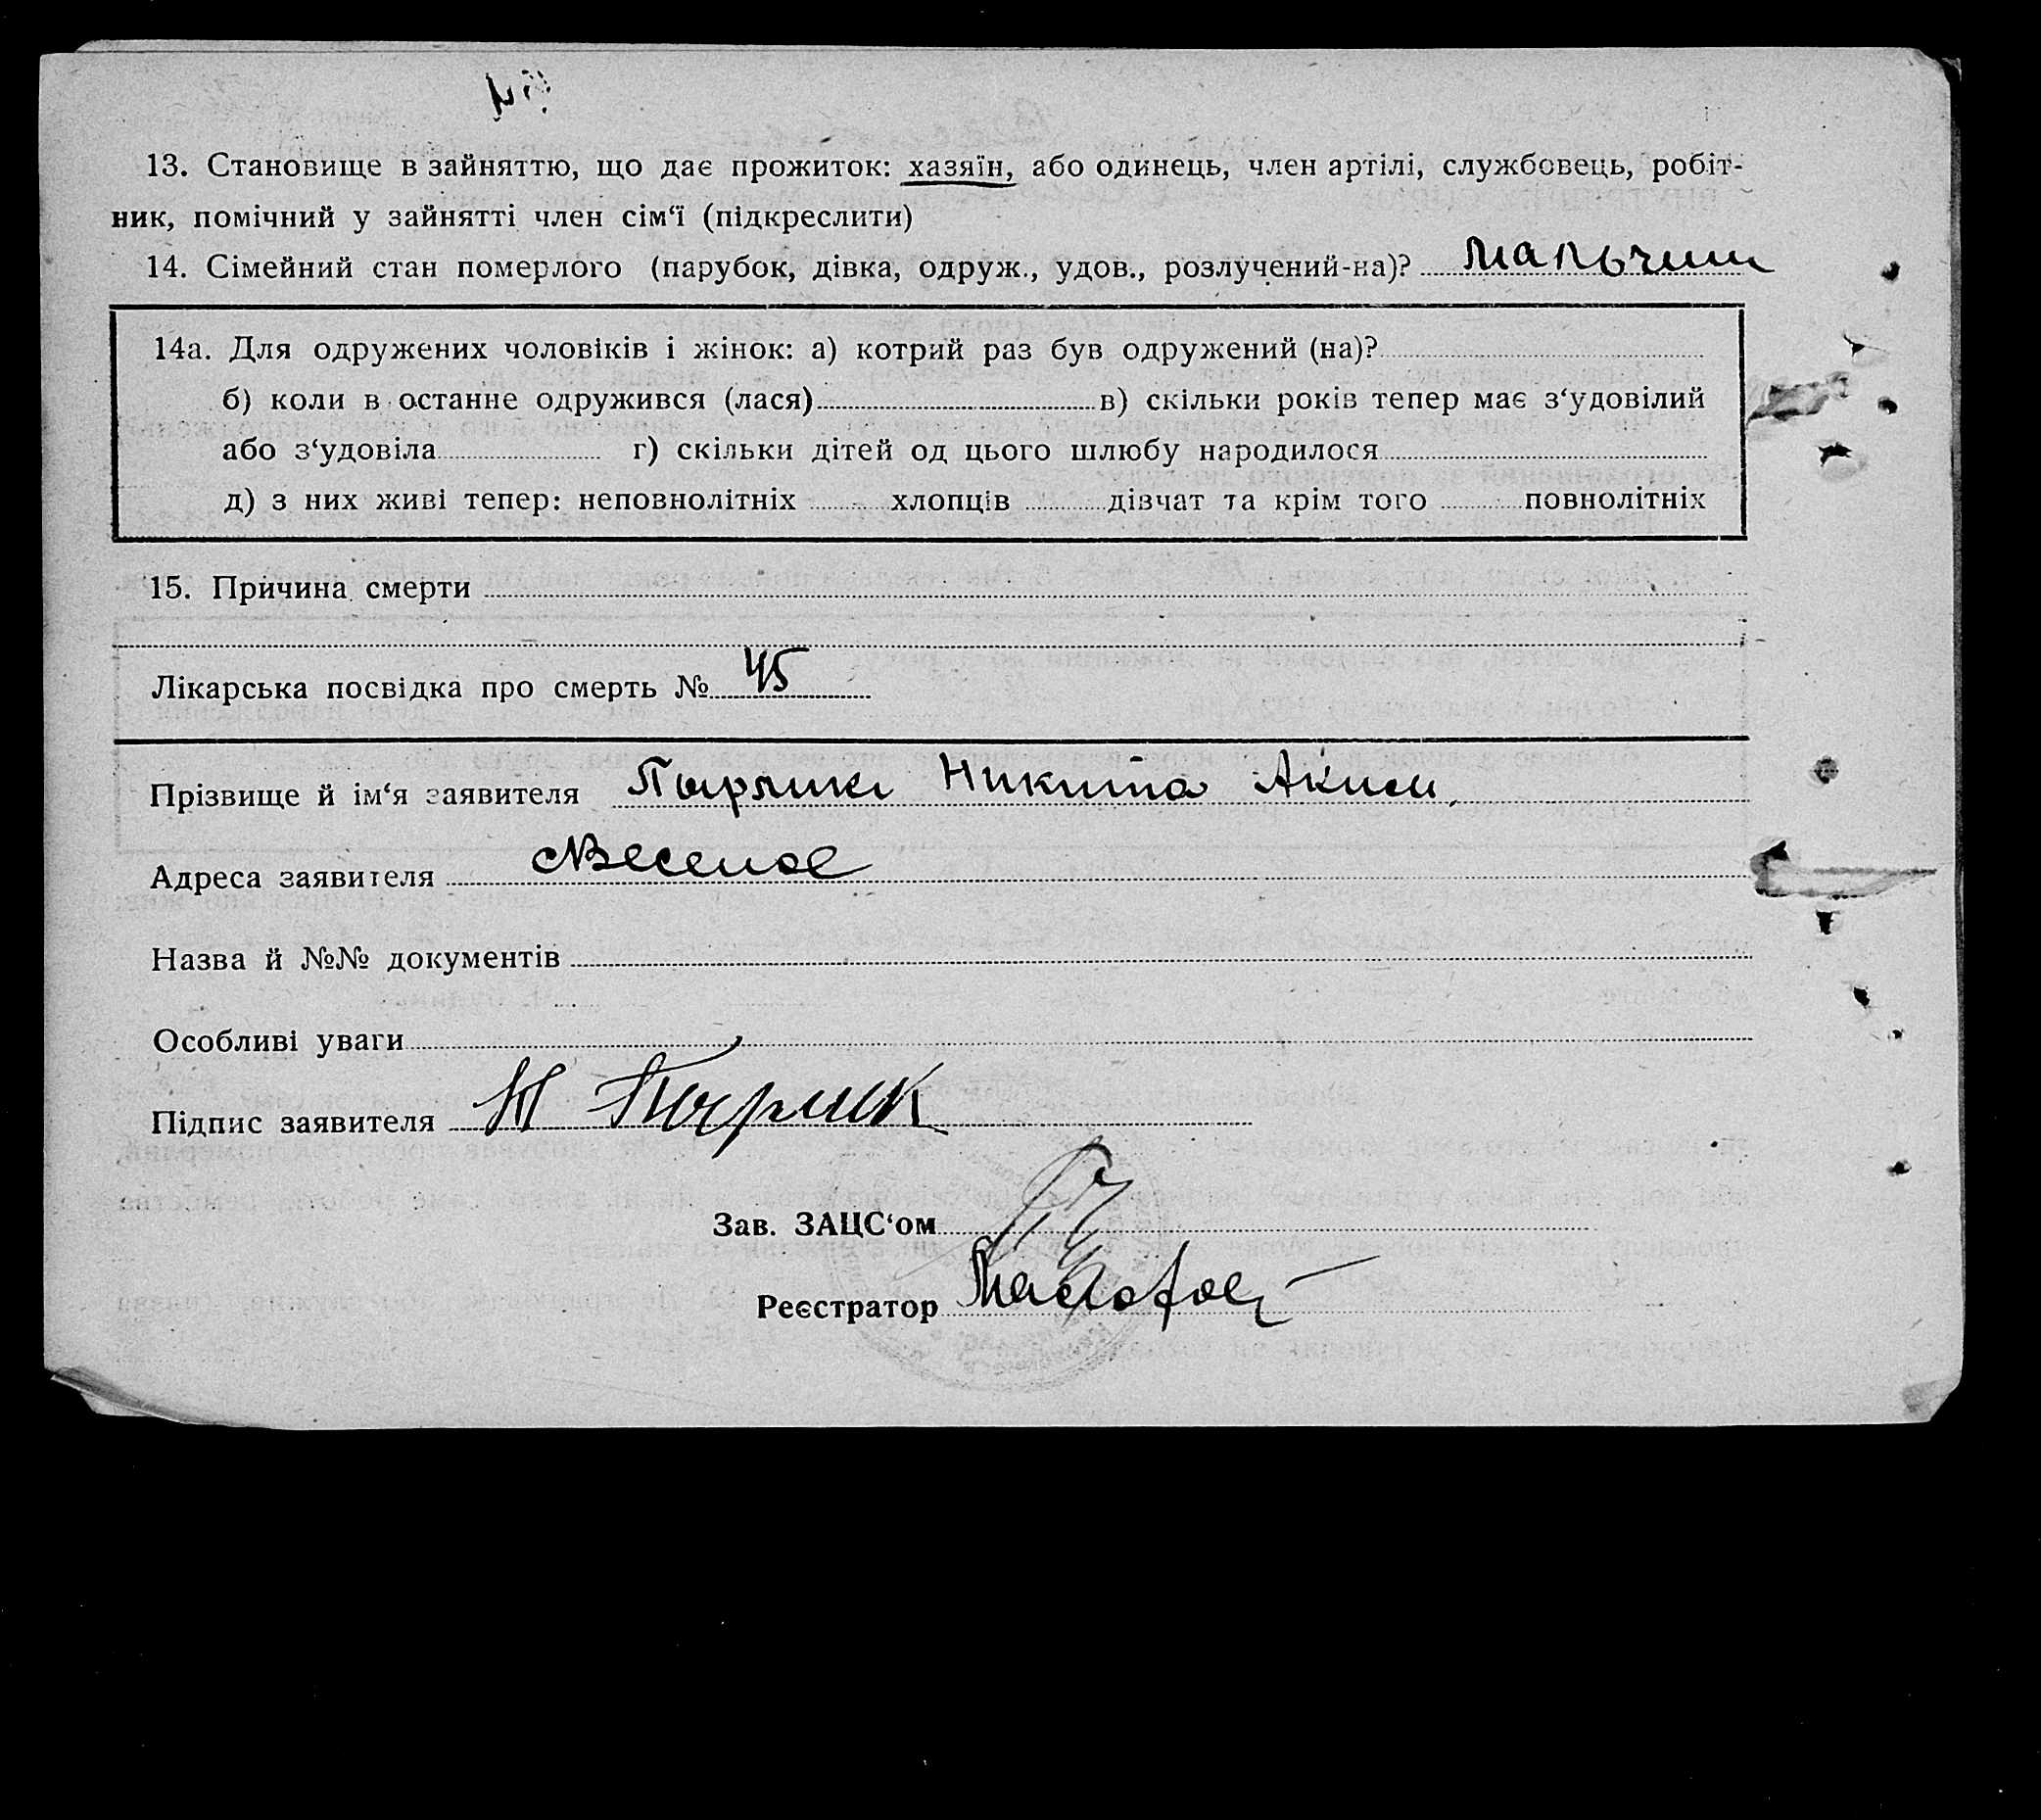 13. Становище в зайняттю, що дає прожиток: хазяїн, або одинець, член артілі, службовець, робіт-
ник, помічний у зайнятті член сім‘ї (підкреслити)
14. Сімейний стан померлого (парубок, дівка, одруж., удов., розлучений-на)?
14а. Для одружених чоловіків і жінок: а) котрий раз був одружений (на)?
б) коли в останне одружився (лася) в) скільки років тепер має з‘удовілий
або з‘удовіла г) скільки дітей од цього шлюбу народилося
д) з них живі тепер: неповнолітніх хлопців дівчат та крім того повнолітніх
15. Причина смерти
Лікарська посвідка про смерть № 45
Прізвище й ім‘я заявителя Никита Аким.
Адреса заявителя Веселое
Назва й №№ документів
Особливі уваги
Підпис заявителя
Зав. ЗАЦС‘ом
Реєстратор